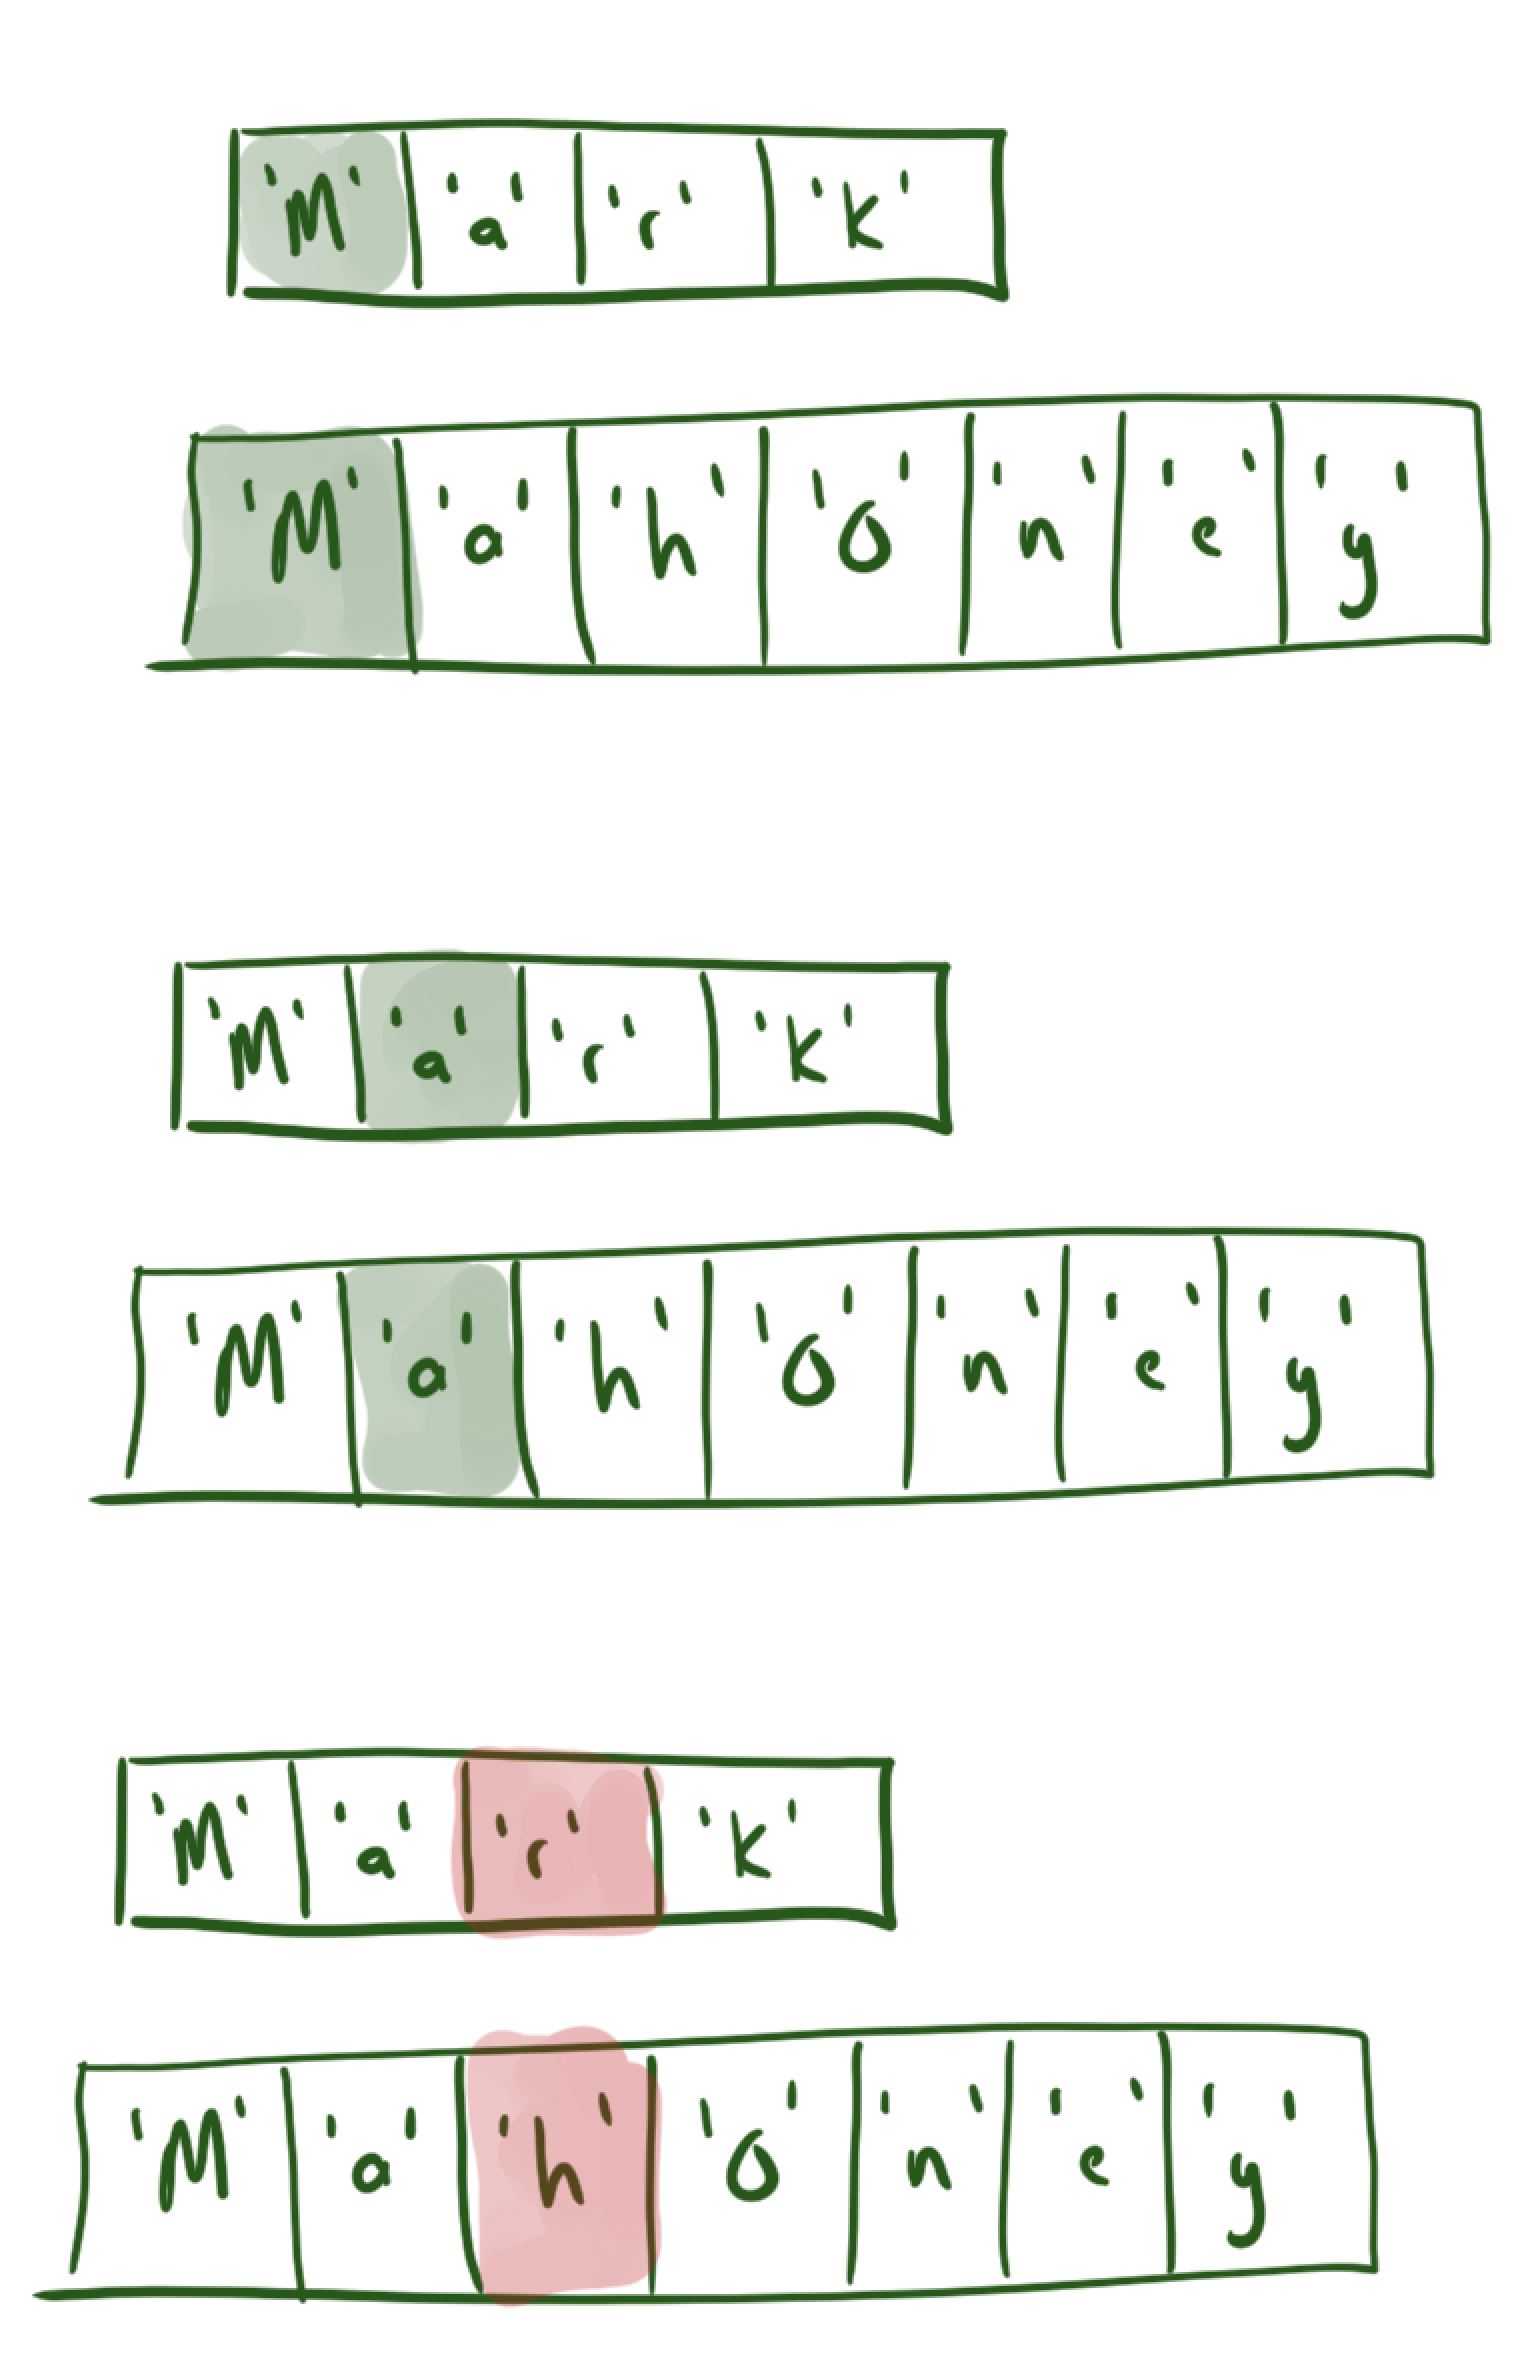 'M' 'a' 'r' 'k'
'M' 'a' 'h' 'o' 'n' 'e' 'y'
'M' 'a' 'r' 'k'
'M' 'a' 'h' 'o' 'n' 'e' 'y'
'M' 'a' 'r' 'k'
'M' 'a' 'h' 'o' 'n' 'e' 'y'